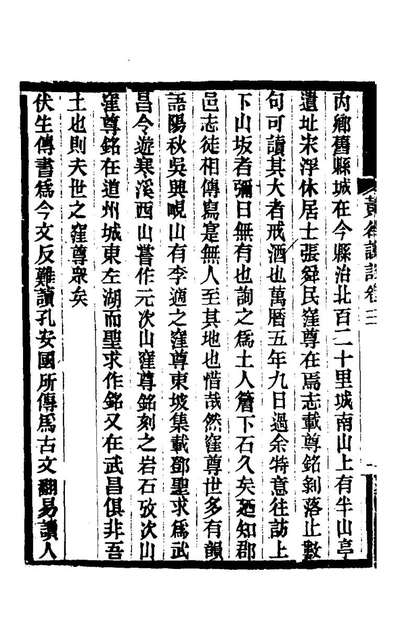 內鄉舊縣城在今縣治北百二十里城南山上有半山亭
遺址宋浮休居士張舜民窪尊在焉志載尊銘剝落止數
句可讀其大者戒酒也萬曆五年九日過余特意往訪上
下山坂者彌日無有也詢之爲土人簷下石久矣廼知郡
邑志徒相傳寫寔無人至其地也惜哉然窪尊世多有韻
語陽秋吳興峴山有李適之窪尊東坡集載鄧聖求爲武
昌令遊寒溪西山嘗作元次山窪尊銘刻之岩石攷次山
窪尊銘在道州城東左湖而聖求作銘又在武昌俱非吾
土也則夫世之窪尊衆矣
伏生傳書爲今文反難讀孔安國所傳爲古文翻易讀人
卷三